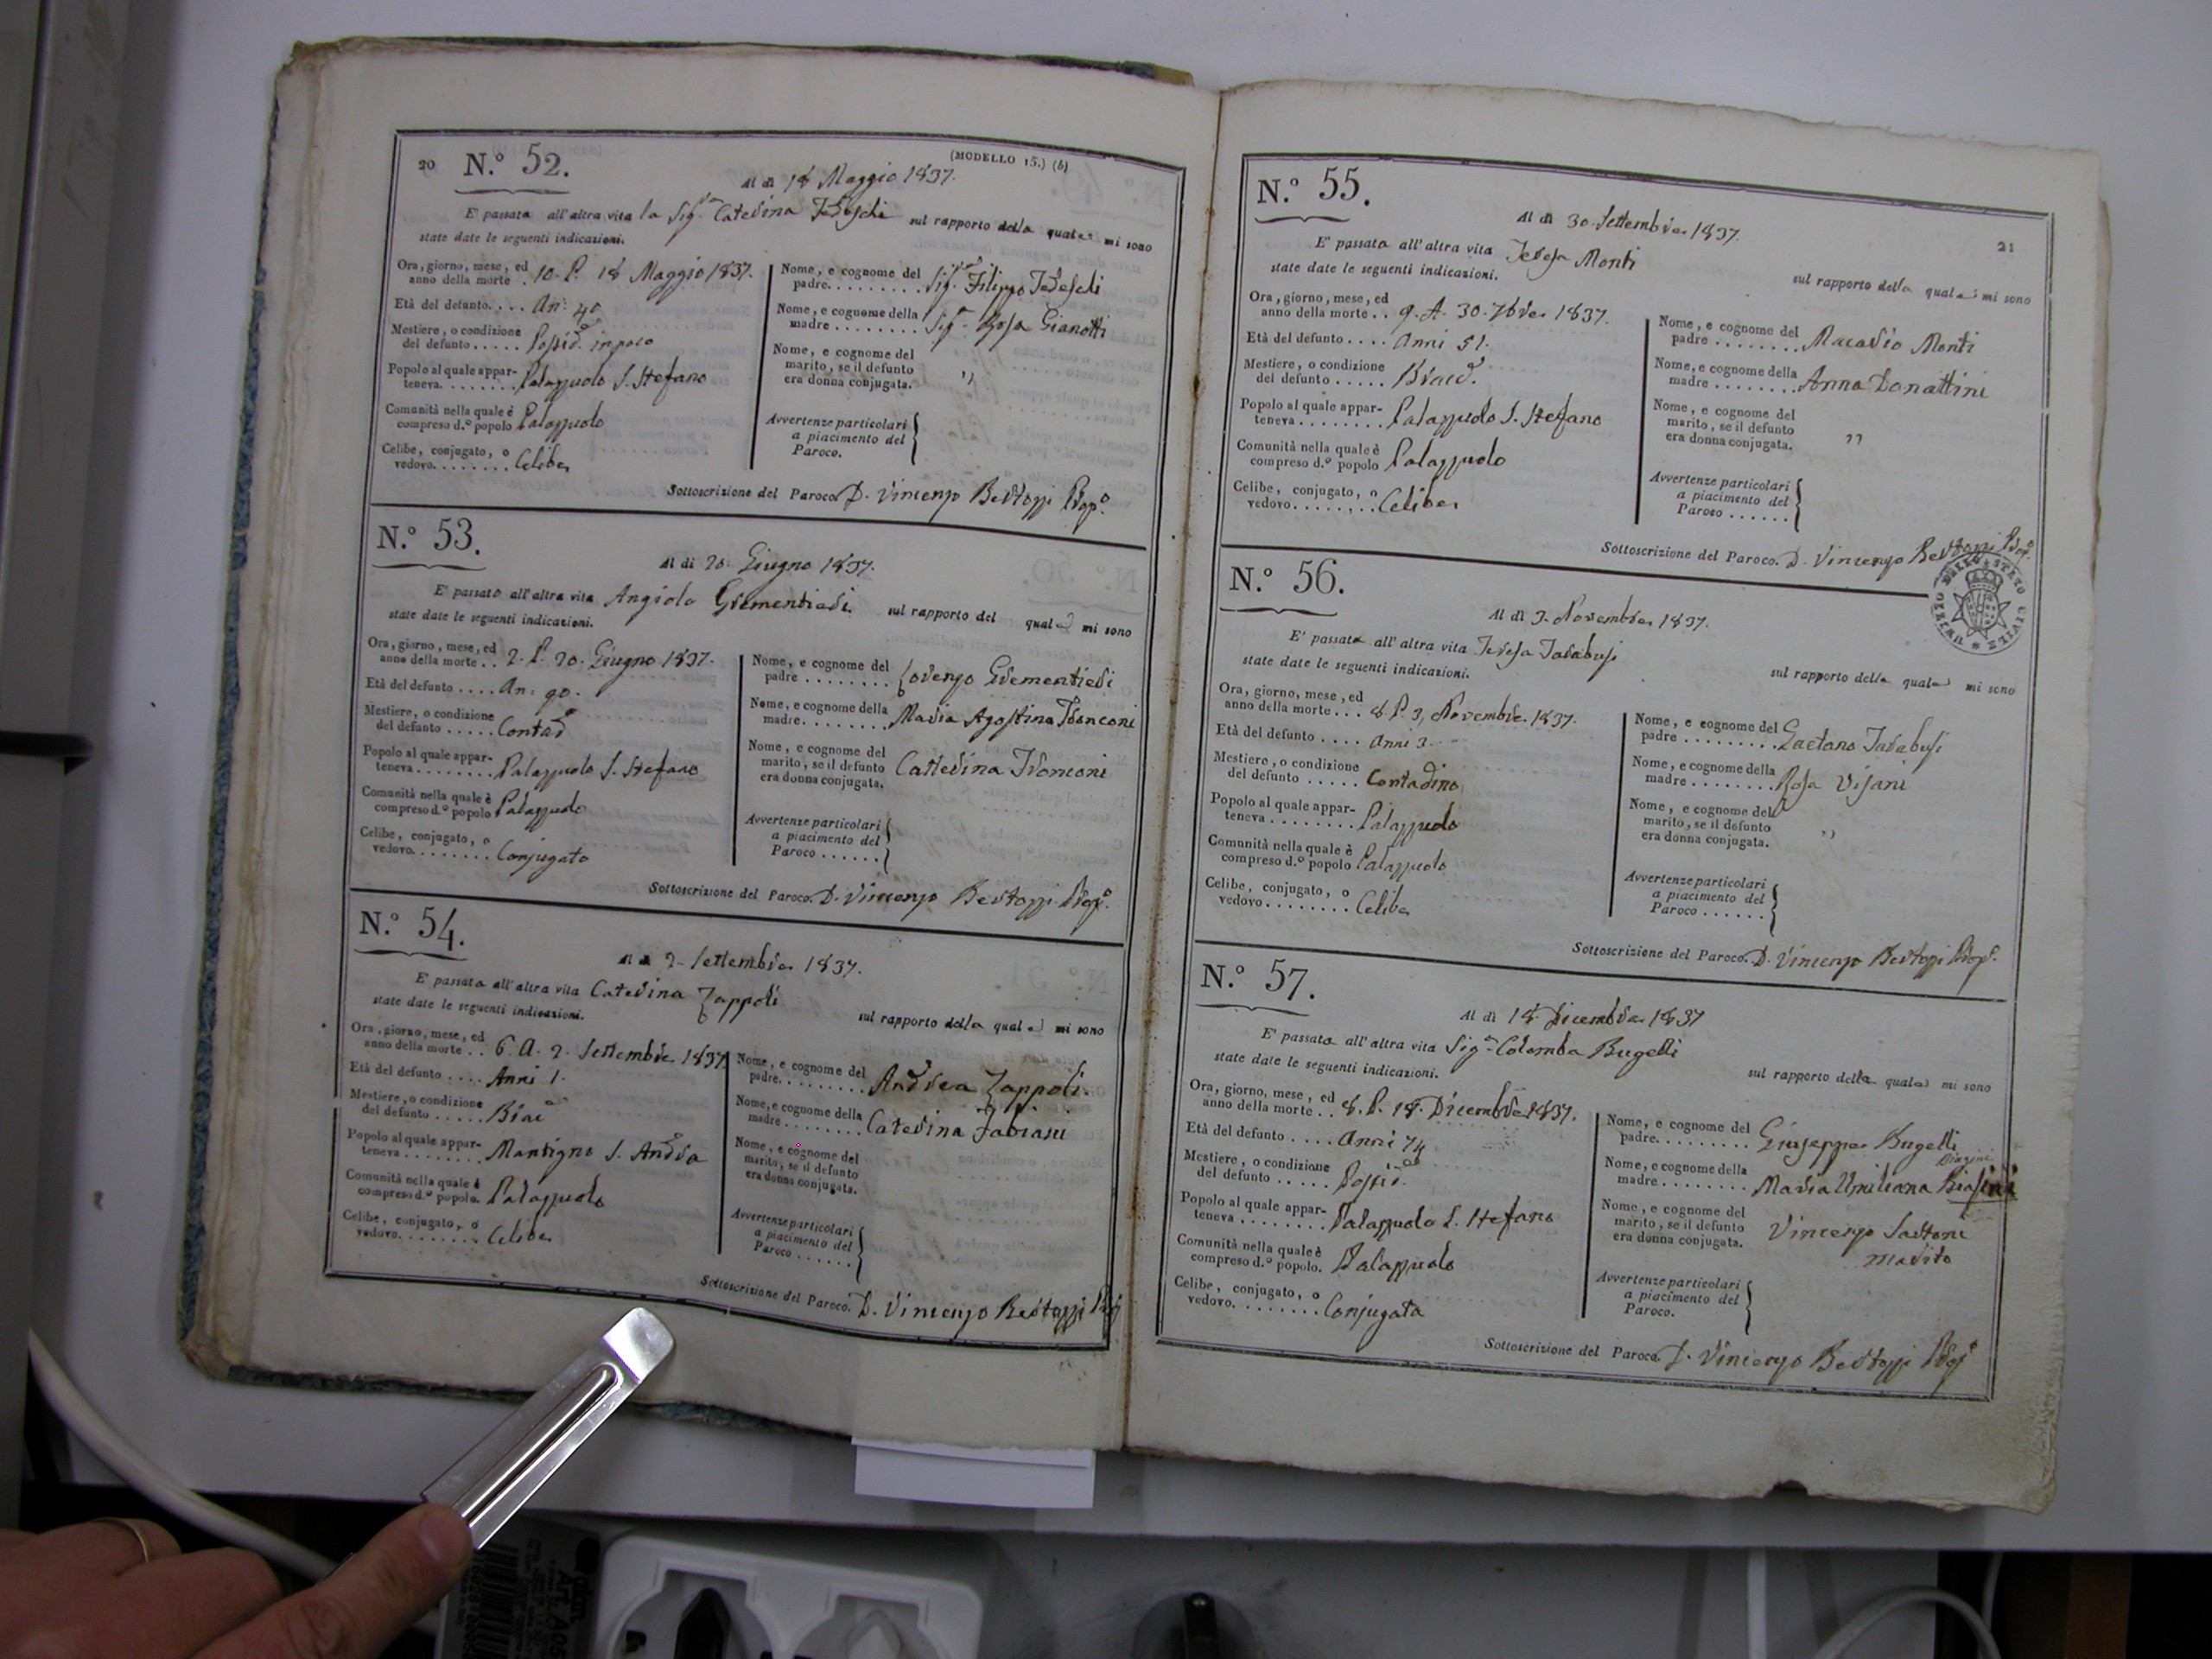 20 N.° 52. (MODELLO 15.) (b)
Al dì 18 Maggio 1837.
E' passata all'altra vita la Sig.ra Caterina Tedeschi sul rapporto della quale mi sono
state date le seguenti indicazioni.
Ora, giorno, mese, ed
anno della morte . 10. P. 18 Maggio 1837.
Età del defunto.... An: 40
Mestiere, o condizione
del defunto ..... Possid. in poco
Popolo al quale appar-
teneva. ....... Palazzuolo S. Stefano
Comunità nella quale è
compreso d.° popolo Palazzuolo
Celibe, conjugato, o
vedovo........ Celibe
Nome, e cognome del
padre......... Sig.r Filippo Tedeschi
Nome, e cognome della
madre ........ Sig.ra Rosa Gianotti
Nome, e cognome del
marito, se il defunto
era donna conjugata. "
Avvertenze particolari
a piacimento del
Paroco.
Sottoscrizione del Paroco. D. Vincenzo Bertozzi Prop.°
N.° 53.
Al dì 20. Giugno 1837.
E' passato all'altra vita Angiolo Grementieri sul rapporto del quale mi sono
state date le seguenti indicazioni.
Ora, giorno, mese, ed
anno della morte .. 2. P. 20. Giugno 1837.
Età del defunto .... An: 90.
Mestiere, o condizione
del defunto ..... Contad
Popolo al quale appar-
teneva ........ Palazzuolo S. Stefano
Comunità nella quale è
compreso d.° popolo Palazzuolo
Celibe, conjugato, o
vedovo........ Conjugato
Nome, e cognome del
padre ........ Lorenzo Grementieri
Nome, e cognome della
madre........ Maria Agostina Tronconi
Nome, e cognome del
marito, se il defunto
era donna conjugata. Catterina Tronconi
Avvertenze particolari
a piacimento del
Paroco ......
Sottoscrizione del Paroco. D. Vincenzo Bertozzi Prop.°
N.° 54.
Al dì 2. Settembre 1837.
E' passata all'altra vita Caterina Zappoli sul rapporto della quale mi sono
state date le seguenti indicazioni.
Ora, giorno, mese, ed
anno della morte .. 6. A. 2. Settembre 1837.
Età del defunto .... Anni 1.
Mestiere, o condizione
del defunto ..... Brac
Popolo al quale appar-
teneva ........ Mantigno S. Andrea
Comunità nella quale è
compreso d.° popolo. Palazzuolo
Celibe, conjugato, o
vedovo........ Celibe
Nome, e cognome del
padre........ Andrea Zappoli.
Nome, e cognome della
madre ........ Caterina Fabiani
Nome, e cognome del
marito, se il defunto
era donna conjugata.
Avvertenze particolari
a piacimento del
Paroco ......
Sottoscrizione del Paroco. D. Vincenzo Bertozzi
N.° 55. 21
Al dì 30. Settembre 1837.
E' passata all'altra vita Teresa Monti sul rapporto della quale mi sono
state date le seguenti indicazioni.
Ora, giorno, mese, ed
anno della morte .. 9. A. 30. 7bre 1837.
Età del defunto .... Anni 51.
Mestiere, o condizione
del defunto ..... Brac.
Popolo al quale appar-
teneva ........ Palazzuolo S. Stefano
Comunità nella quale è
compreso d.° popolo Palazzuolo
Celibe, conjugato, o
vedovo........ Celibe
Nome, e cognome del
padre ........ Macario Monti
Nome, e cognome della
madre ........ Anna Donattini
Nome, e cognome del
marito, se il defunto
era donna conjugata. "
Avvertenze particolari
a piacimento del
Paroco ......
Sottoscrizione del Paroco. D. Vincenzo Bertozzi Prop.°
UFFIZIO DELLO STATO CIVILE
N.° 56.
Al dì 3. Novembre 1837.
E' passata all'altra vita Teresa Tarabusi sul rapporto della quale mi sono
state date le seguenti indicazioni.
Ora, giorno, mese, ed
anno della morte ... 8 P. 3, Novembre 1837.
Età del defunto .... Anni 3.
Mestiere, o condizione
del defunto ..... Contadino
Popolo al quale appar-
teneva ........ Palazzuolo
Comunità nella quale è
compreso d.° popolo Palazzuolo
Celibe, conjugato, o
vedovo........ Celibe
Nome, e cognome del
padre ........ Gaetano Tarabusi
Nome, e cognome della
madre ........ Rosa Visani
Nome, e cognome del
marito, se il defunto
era donna conjugata. "
Avvertenze particolari
a piacimento del
Paroco ......
Sottoscrizione del Paroco. D. Vincenzo Bertozzi Prop.°
N.° 57.
Al dì 18. Dicembre 1837
E' passata all'altra vita Sig.ra Colomba Bugelli sul rapporto della quale mi sono
state date le seguenti indicazioni.
Ora, giorno, mese, ed
anno della morte .. 8. P. 18. Dicembre 1837.
Età del defunto .... Anni 74
Mestiere, o condizione
del defunto ..... Possid.
Popolo al quale appar-
teneva ........ Palazzuolo S. Stefano
Comunità nella quale è
compreso d.° popolo. Palazzuolo
Celibe, conjugato, o
vedovo........ Conjugata
Nome, e cognome del
padre......... Giuseppe Bugelli
Nome, e cognome della
madre ........ Maria Umiliana
Nome, e cognome del
marito, se il defunto
era donna conjugata. Vincenzo Sartoni
marito
Avvertenze particolari
a piacimento del
Paroco.
Sottoscrizione del Paroco. D. Vincenzo Bertozzi Prop.°